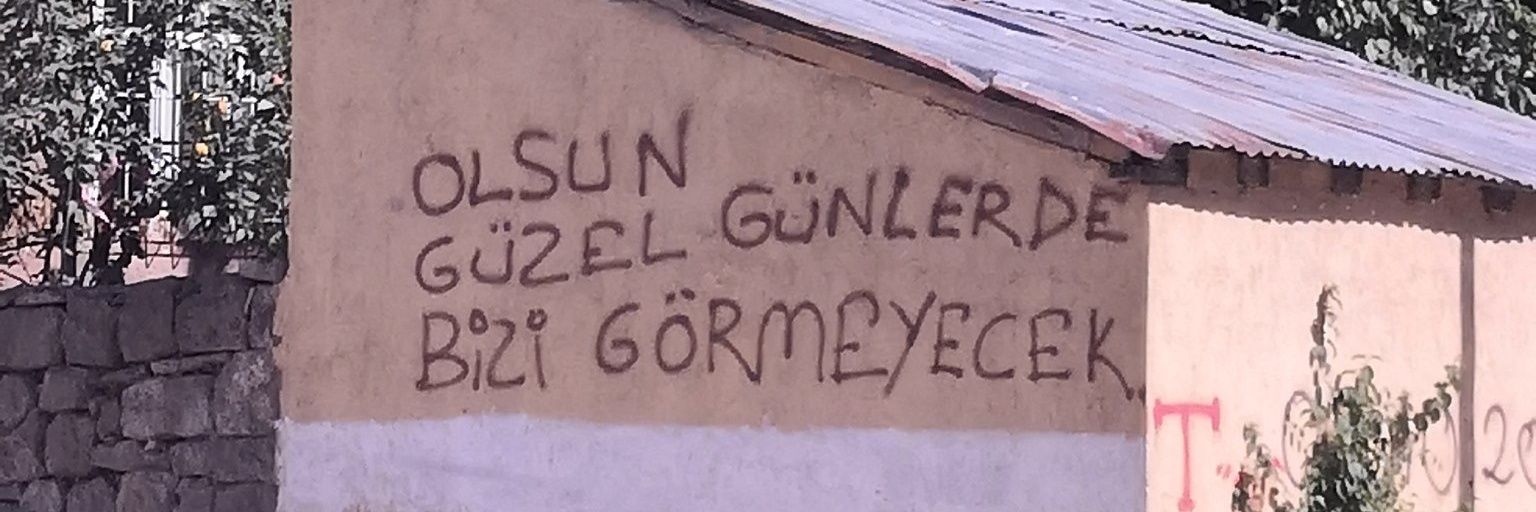 OLSUN
GÜZEL GÜNLERDE
BİZİ GÖRMEYECEK
T